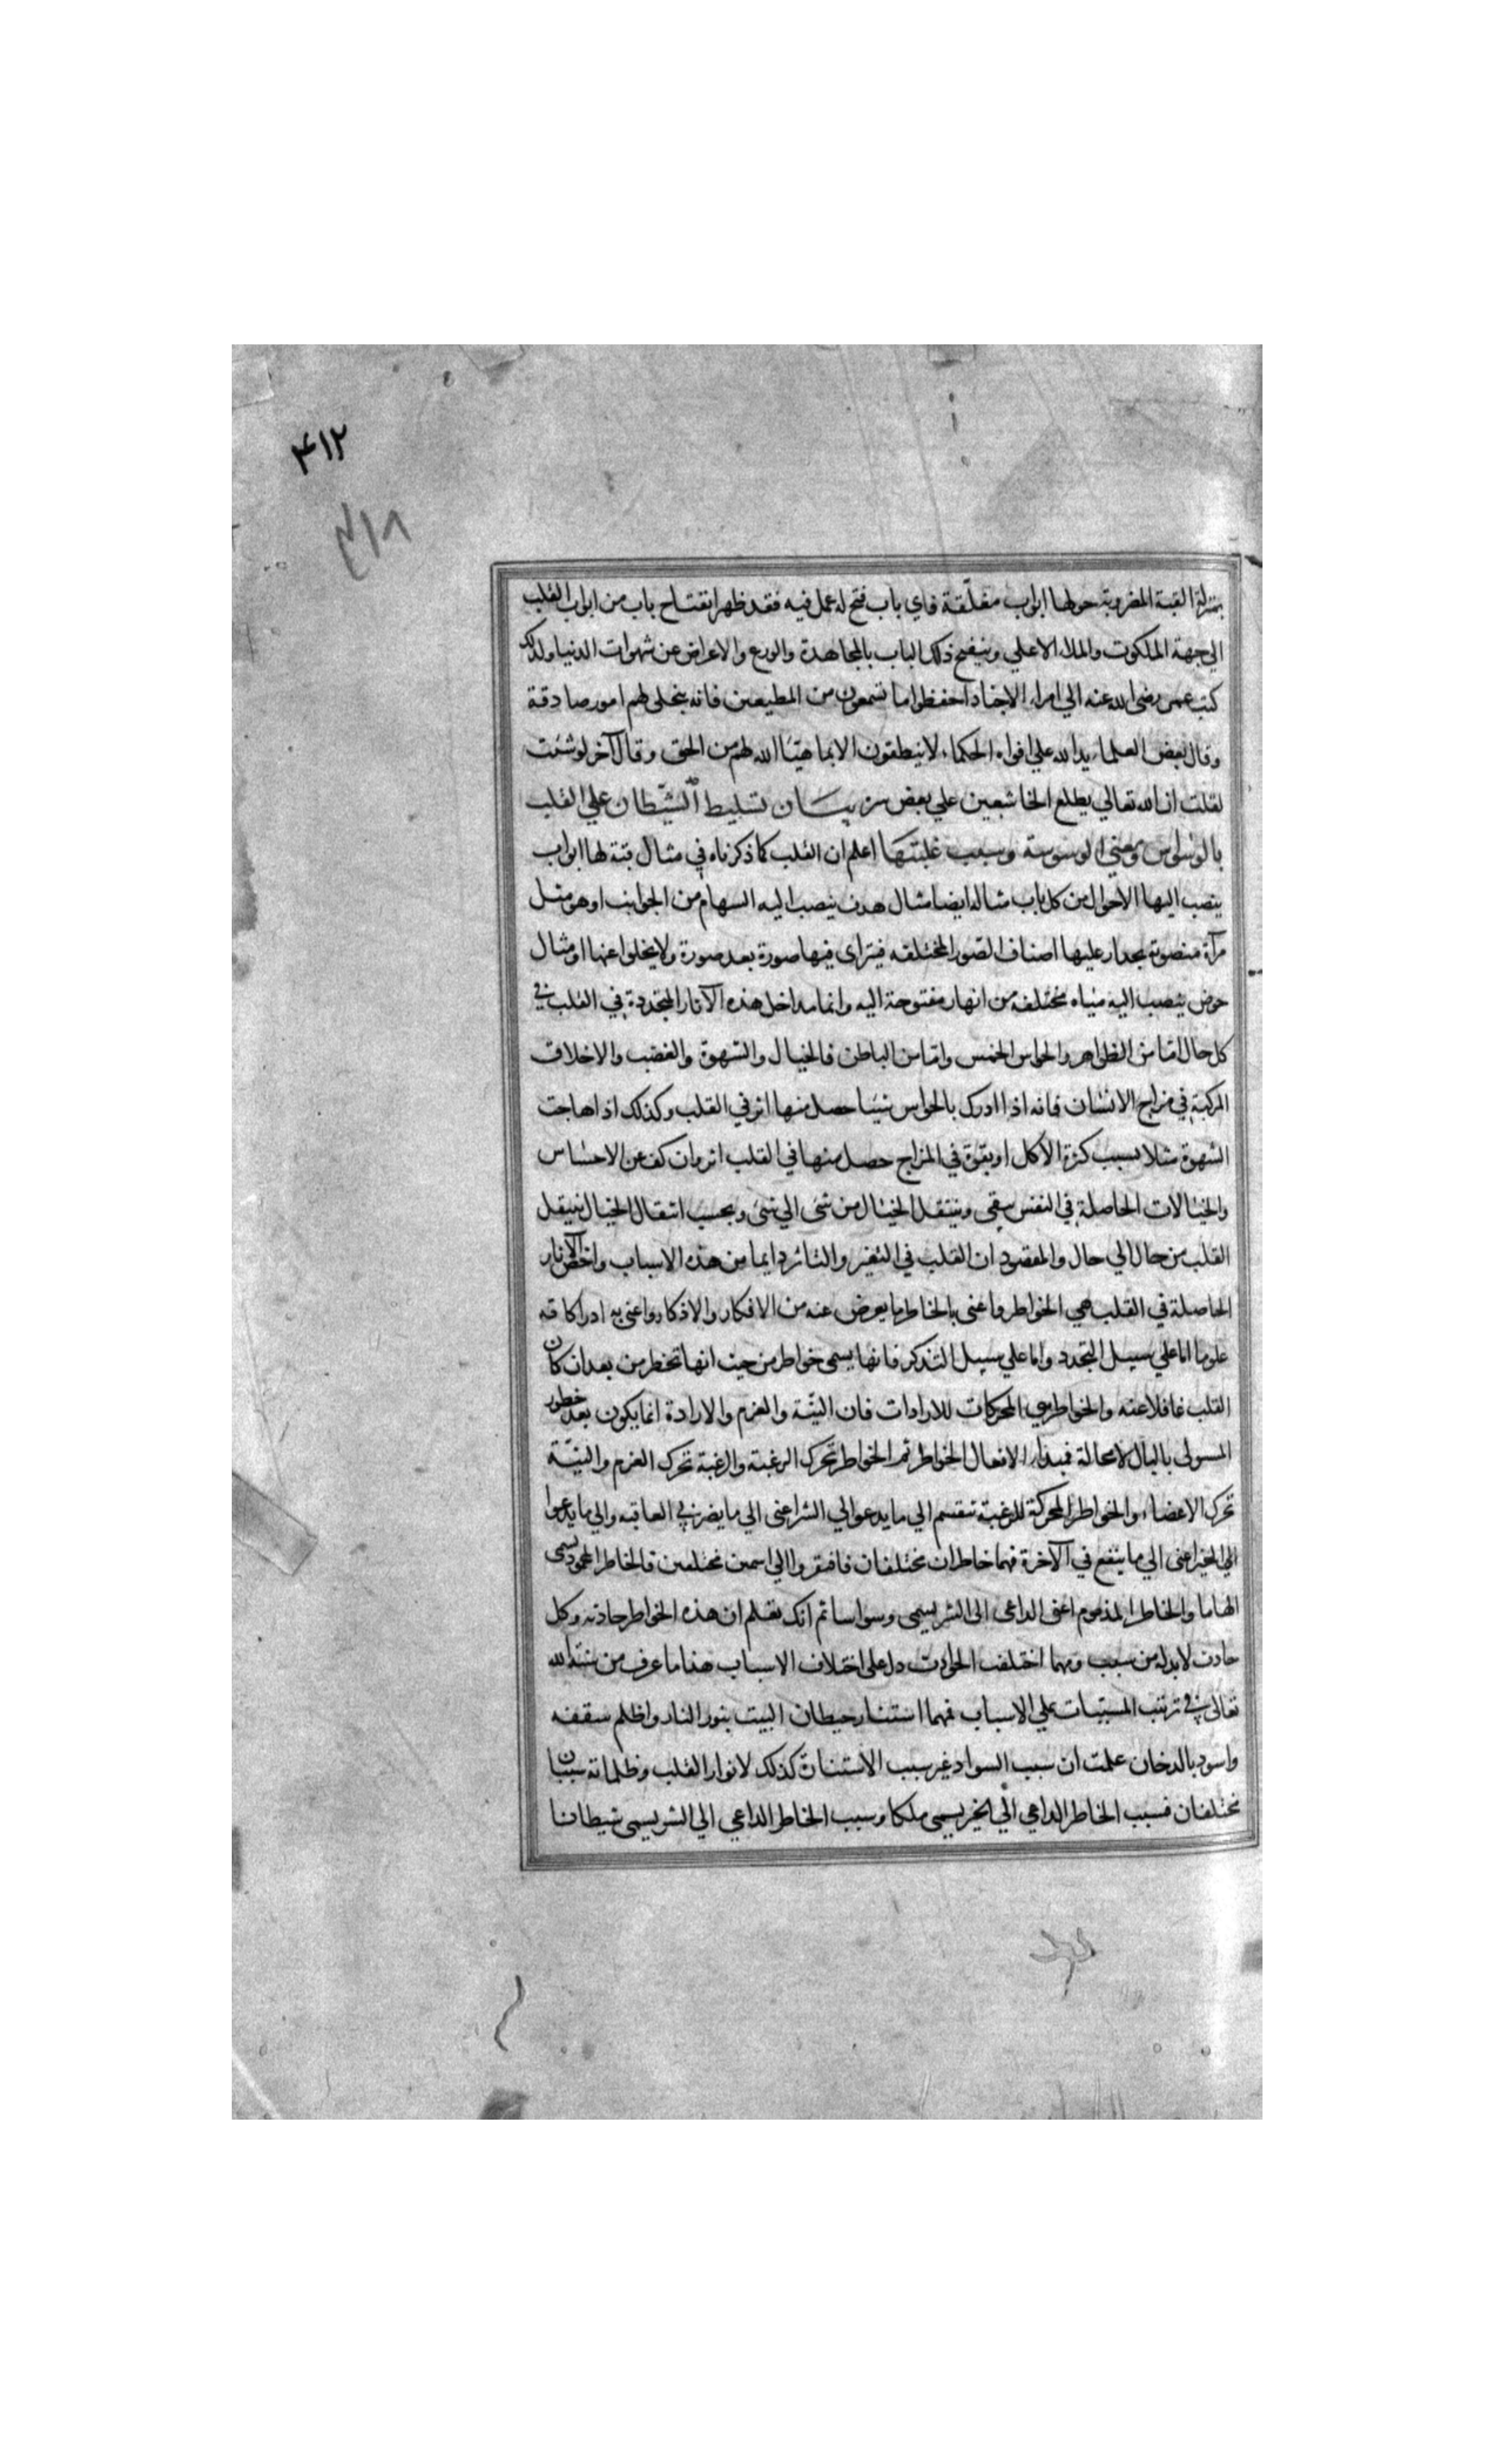 ۴۱۲
۴۱۸
بمنزلة القبة المضروبة حولها ابواب مغلّقة فاي باب فتح له عمل فيه فقد ظهر انفتاح باب من ابواب القلب
الي جهة الملكوت والملاء الاعلي وينفتح ذلك الباب بالمجاهدة والورع والاعراض عن شهوات الدنيا ولذلك
كتب عمر رضى الله عنه الي امراء الاجناد احفظوا ما تسمعون من المطيعين فانه ينجلى لهم امور صادقة
وقال بعض العلماء يد الله علي افواه الحكماء لا ينطقون الا بما هيّأ الله لهم من الحق وقال آخر لو شئت
لقلت ان الله تعالي يطلع الخاشعين علي بعض سره بيان تسليط الشيطان علي القلب
بالوسواس ومعني الوسوسة وسبب غلبتها اعلم ان القلب كما ذكرناه في مثال قبة لها ابواب
ينصب اليها الاحوال من كل باب مثاله ايضا مثال هدف ينصب اليه السهام من الجوانب او هو مثل
مرآة منصوبة بجدار عليها اصناف الصّور المختلفه فيتراى فيها صورة بعد صورة ولا يخلوا عنها او مثال
حوض ينصب اليه مياه مختلفه من انهار مفتوحة اليه وانما مداخل هذه الآثار المتجددة في القلب في
كل حال امّا من الظواهر والحواس الخمس وامّا من الباطن فالخيال والشهوة والغضب والاخلاق
المركبة في مزاج الانسان فانه اذا ادرك بالحواس شيئا حصل منها اثر في القلب وكذلك اذا هاجت
الشهوة مثلا بسبب كثرة الاكل او بقوّة في المزاج حصل منها في القلب اثر وان كف عن الاحساس
والخيالات الحاصلة في النفس يبقى وينتقل الخيال من شئ الي شئ وبحسب انتقال الخيال ينتقل
القلب من حال الي حال والمقصود ان القلب في التغير والتاثر دايما من هذه الاسباب واخصّ الآثار
الحاصلة في القلب هي الخواطر واعنى بالخاطر ما يعرض عنه من الافكار والاذكار واعنى به ادراكاته
علوما اما علي سبيل التجدد واما علي سبيل التذكر فانها يسمى خواطر من حيث انها تخطر من بعد ان كان
القلب غافلا عنه والخواطر هي المحركات للارادات فان النيّة والعزم والارادة انما يكون بعد خطور
المنوى بالبال لا محالة فمبداء الافعال الخواطر ثم الخواطر تحرك الرغبة والرغبة تحرك العزم والنيّة
تحرك الاعضاء والخواطر المحركة للرغبة تنقسم الي ما يدعو الي الشر اعنى الي ما يضر في العاقبه والي ما يدعوا
الي الخير اعنى الي ما ينفع في الآخرة فهما خاطران مختلفان فافتقروا الي اسمين مختلفين فالخاطر المحمود يسمى
الهاما والخاطر المذموم اعنى الداعى الى الشر يسمى وسواسا ثم انك تعلم ان هذه الخواطر حادثه وكل
حادث لابد له من سبب ومهما اختلفت الحوادث دل على اختلاف الاسباب هذا ما عرف من سنّة الله
تعالى في ترتيب المسببات علي الاسباب فمهما استنار حيطان البيت بنور النار واظلم سقفه
واسود بالدخان علمت ان سبب السواد غير سبب الاستنارة كذلك لانوار القلب وظلماته سببان
مختلفان فسبب الخاطر الداعي الي الخير يسمى ملكا وسبب الخاطر الداعي الي الشر يسمى شيطانا